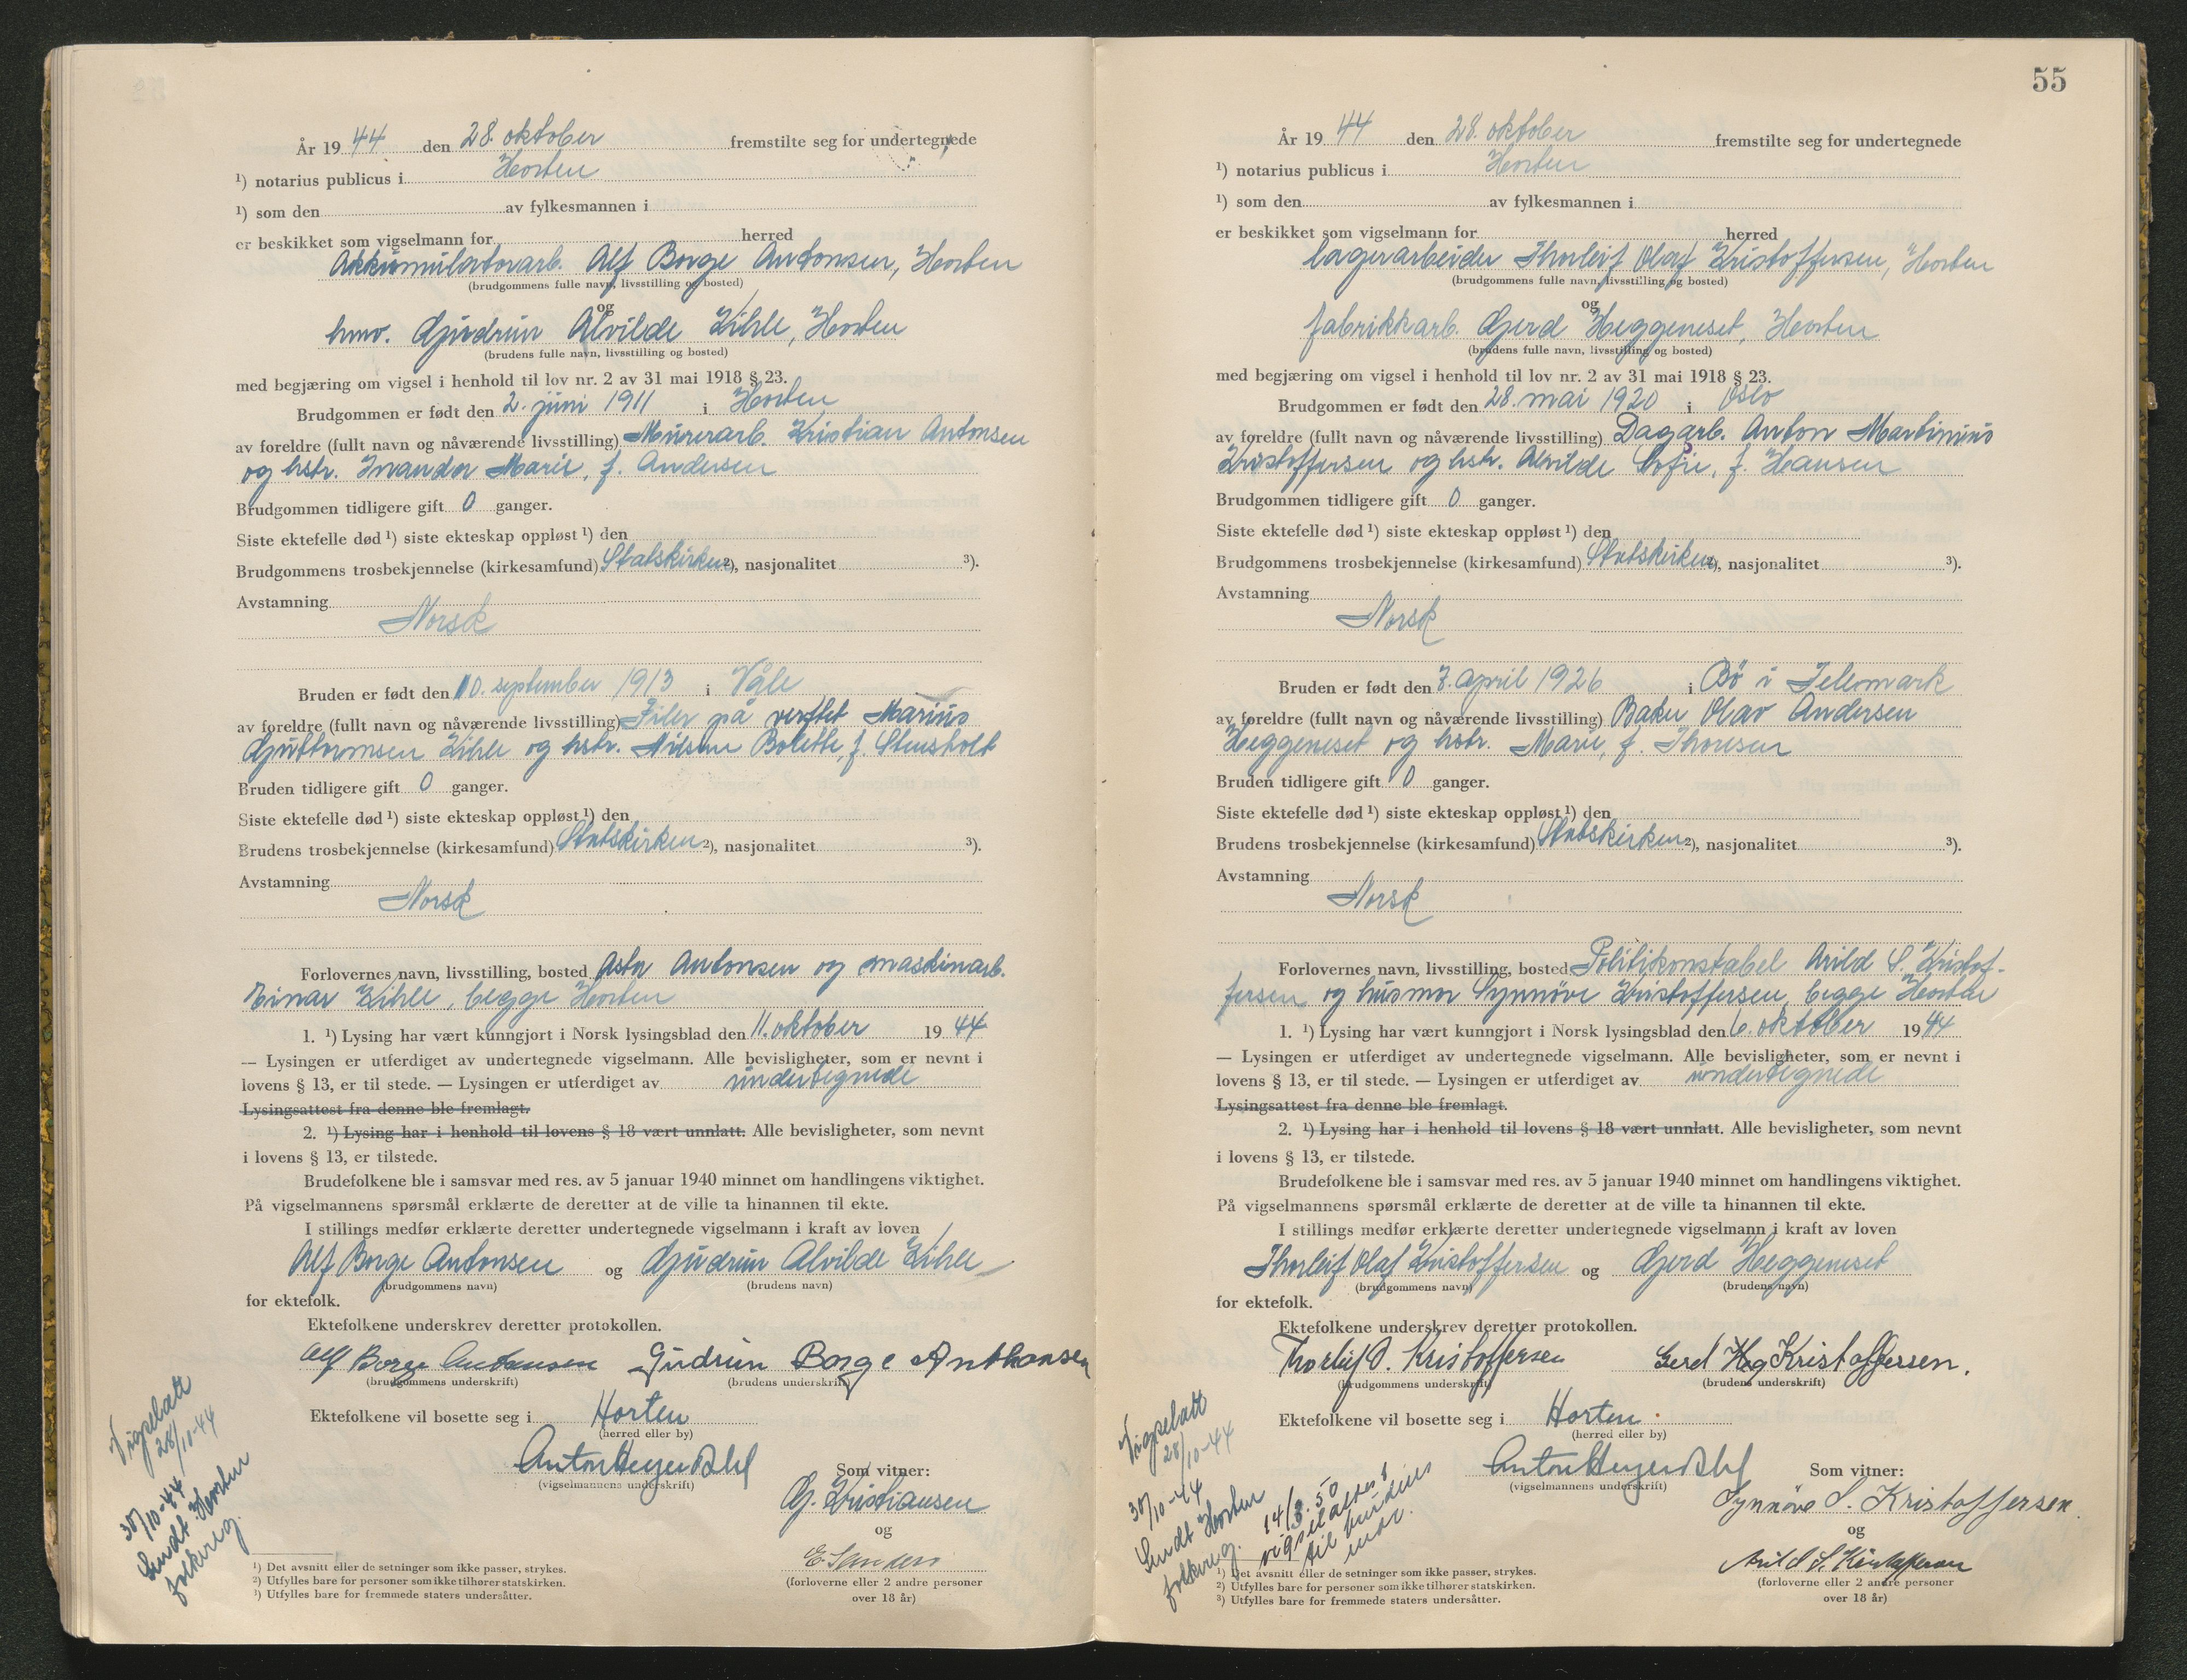 År 19 44 den 28. oktober fremstilte seg for undertegnede
¹) notarius publicus i Horten
¹) som den av fylkesmannen i
er beskikket som vigselmann for herred
Akkumulatorarb. Alf Borge Antonsen, Horten
(brudgommens fulle navn, livsstilling og bosted)
og
hmv. Gjudrun Alvilde Kihle, Horten
(brudens fulle navn, livsstilling og bosted)
med begjæring om vigsel i henhold til lov nr. 2 av 31 mai 1918 § 23.
Brudgommen er født den 2. juni 1911 i Horten
av foreldre (fullt navn og nåværende livsstilling) Murerarb. Kristian Antonsen
og hstr. Marie, f. Andersen
Brudgommen tidligere gift 0 ganger.
Siste ektefelle død ¹) siste ekteskap oppløst ¹) den
Brudgommens trosbekjennelse (kirkesamfund) Statskirken ²), nasjonalitet ³).
Avstamning
Norsk
Bruden er født den 10. september 1913 i Våle
av foreldre (fullt navn og nåværende livsstilling) Filer på verftet Marius
Guttormsen Kihle og hstr. Nilsine Bolette, f. Stensholt
Bruden tidligere gift 0 ganger.
Siste ektefelle død ¹) siste ekteskap oppløst ¹) den
Brudens trosbekjennelse (kirkesamfund) Statskirken ²), nasjonalitet ³).
Avstamning
Norsk
Forlovernes navn, livsstilling, bosted Asta Antonsen og maskinarb.
Einar Kihle, begge Horten
1. ¹) Lysing har vært kunngjort i Norsk lysingsblad den 11. oktober 19 44
— Lysingen er utferdiget av undertegnede vigselmann. Alle bevisligheter, som er nevnt i
lovens § 13, er til stede. — Lysingen er utferdiget av undertegnede
Lysingsattest fra denne ble fremlagt.
2. ¹) Lysing har i henhold til lovens § 18 vært unnlatt. Alle bevisligheter, som nevnt
i lovens § 13, er tilstede.
Brudefolkene ble i samsvar med res. av 5 januar 1940 minnet om handlingens viktighet.
På vigselmannens spørsmål erklærte de deretter at de ville ta hinannen til ekte.
I stillings medfør erklærte deretter undertegnede vigselmann i kraft av loven
Alf Borge Antonsen og Gjudrun Alvilde Kihle
(brudgommens navn) (brudens navn)
for ektefolk.
Ektefolkene underskrev deretter protokollen.
Alf Borge Antonsen Gudrun Borge Anthonsen
(brudgommens underskrift) (brudens underskrift)
Ektefolkene vil bosette seg i Horten
(herred eller by)
Anton Heyerdahl
(vigselmannens underskrift)
Som vitner:
G. Kristiansen
og
E. Sanders
(forloverne eller 2 andre personer
over 18 år)
Vigselatt
28/10-44
30/10-44
Sendt Horten
folkereg.
¹) Det avsnitt eller de setninger som ikke passer, strykes.
²) Utfylles bare for personer som ikke tilhører statskirken.
³) Utfylles bare for fremmede staters undersåtter.
55
År 19 44 den 28. oktober fremstilte seg for undertegnede
¹) notarius publicus i Horten
¹) som den av fylkesmannen i
er beskikket som vigselmann for herred
lagerarbeider Thorleif Olaf Kristoffersen, Horten
(brudgommens fulle navn, livsstilling og bosted)
og
fabrikkarb. Gjerd Heggeneset, Horten
(brudens fulle navn, livsstilling og bosted)
med begjæring om vigsel i henhold til lov nr. 2 av 31 mai 1918 § 23.
Brudgommen er født den 28. mai 1920 i Oslo
av foreldre (fullt navn og nåværende livsstilling) Dagarb. Anton Martinius
Kristoffersen og hstr. Alvilde Sofie, f. Hansen
Brudgommen tidligere gift 0 ganger.
Siste ektefelle død ¹) siste ekteskap oppløst ¹) den
Brudgommens trosbekjennelse (kirkesamfund) Statskirken ²), nasjonalitet ³).
Avstamning
Norsk
Bruden er født den 7. april 1926 i Bö i Telemark
av foreldre (fullt navn og nåværende livsstilling) Baker Olav Andersen
Heggeneset og hstr. Marie, f. Thoresen
Bruden tidligere gift 0 ganger.
Siste ektefelle død ¹) siste ekteskap oppløst ¹) den
Brudens trosbekjennelse (kirkesamfund) Statskirken ²), nasjonalitet ³).
Avstamning
Norsk
Forlovernes navn, livsstilling, bosted Politikonstabel Arild S. Kristof-
fersen og husmor Synnöve Kristoffersen, begge Horten
1. ¹) Lysing har vært kunngjort i Norsk lysingsblad den 6. oktober 19 44
— Lysingen er utferdiget av undertegnede vigselmann. Alle bevisligheter, som er nevnt i
lovens § 13, er til stede. — Lysingen er utferdiget av undertegnede
Lysingsattest fra denne ble fremlagt.
2. ¹) Lysing har i henhold til lovens § 18 vært unnlatt. Alle bevisligheter, som nevnt
i lovens § 13, er tilstede.
Brudefolkene ble i samsvar med res. av 5 januar 1940 minnet om handlingens viktighet.
På vigselmannens spørsmål erklærte de deretter at de ville ta hinannen til ekte.
I stillings medfør erklærte deretter undertegnede vigselmann i kraft av loven
Thorleif Olaf Kristoffersen og Gjerd Heggeneset
(brudgommens navn) (brudens navn)
for ektefolk.
Ektefolkene underskrev deretter protokollen.
Thorleif O. Kristoffersen Gerd Heg Kristoffersen.
(brudgommens underskrift) (brudens underskrift)
Ektefolkene vil bosette seg i Horten.
(herred eller by)
Anton Heyerdahl
(vigselmannens underskrift)
Som vitner:
Synnöve S. Kristoffersen.
og
Arild S Kristoffersen
(forloverne eller 2 andre personer
over 18 år)
Vigselatt
28/10-44
30/10-44
Sendt Horten
folkereg.
14/3.50
vigselattest
til brudens
mor.
¹) Det avsnitt eller de setninger som ikke passer, strykes.
²) Utfylles bare for personer som ikke tilhører statskirken.
³) Utfylles bare for fremmede staters undersåtter.